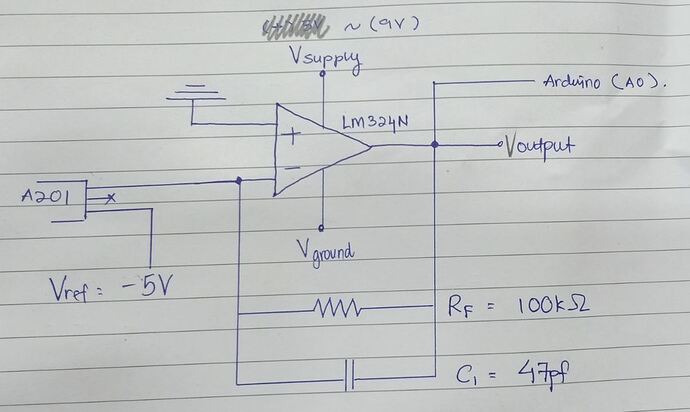 ~ (9V)
Vsupply
Arduino (A0).
LM324N
+
Voutput
−
A201
Vground
Vref = -5V
RF = 100kΩ
C1 = 47pf